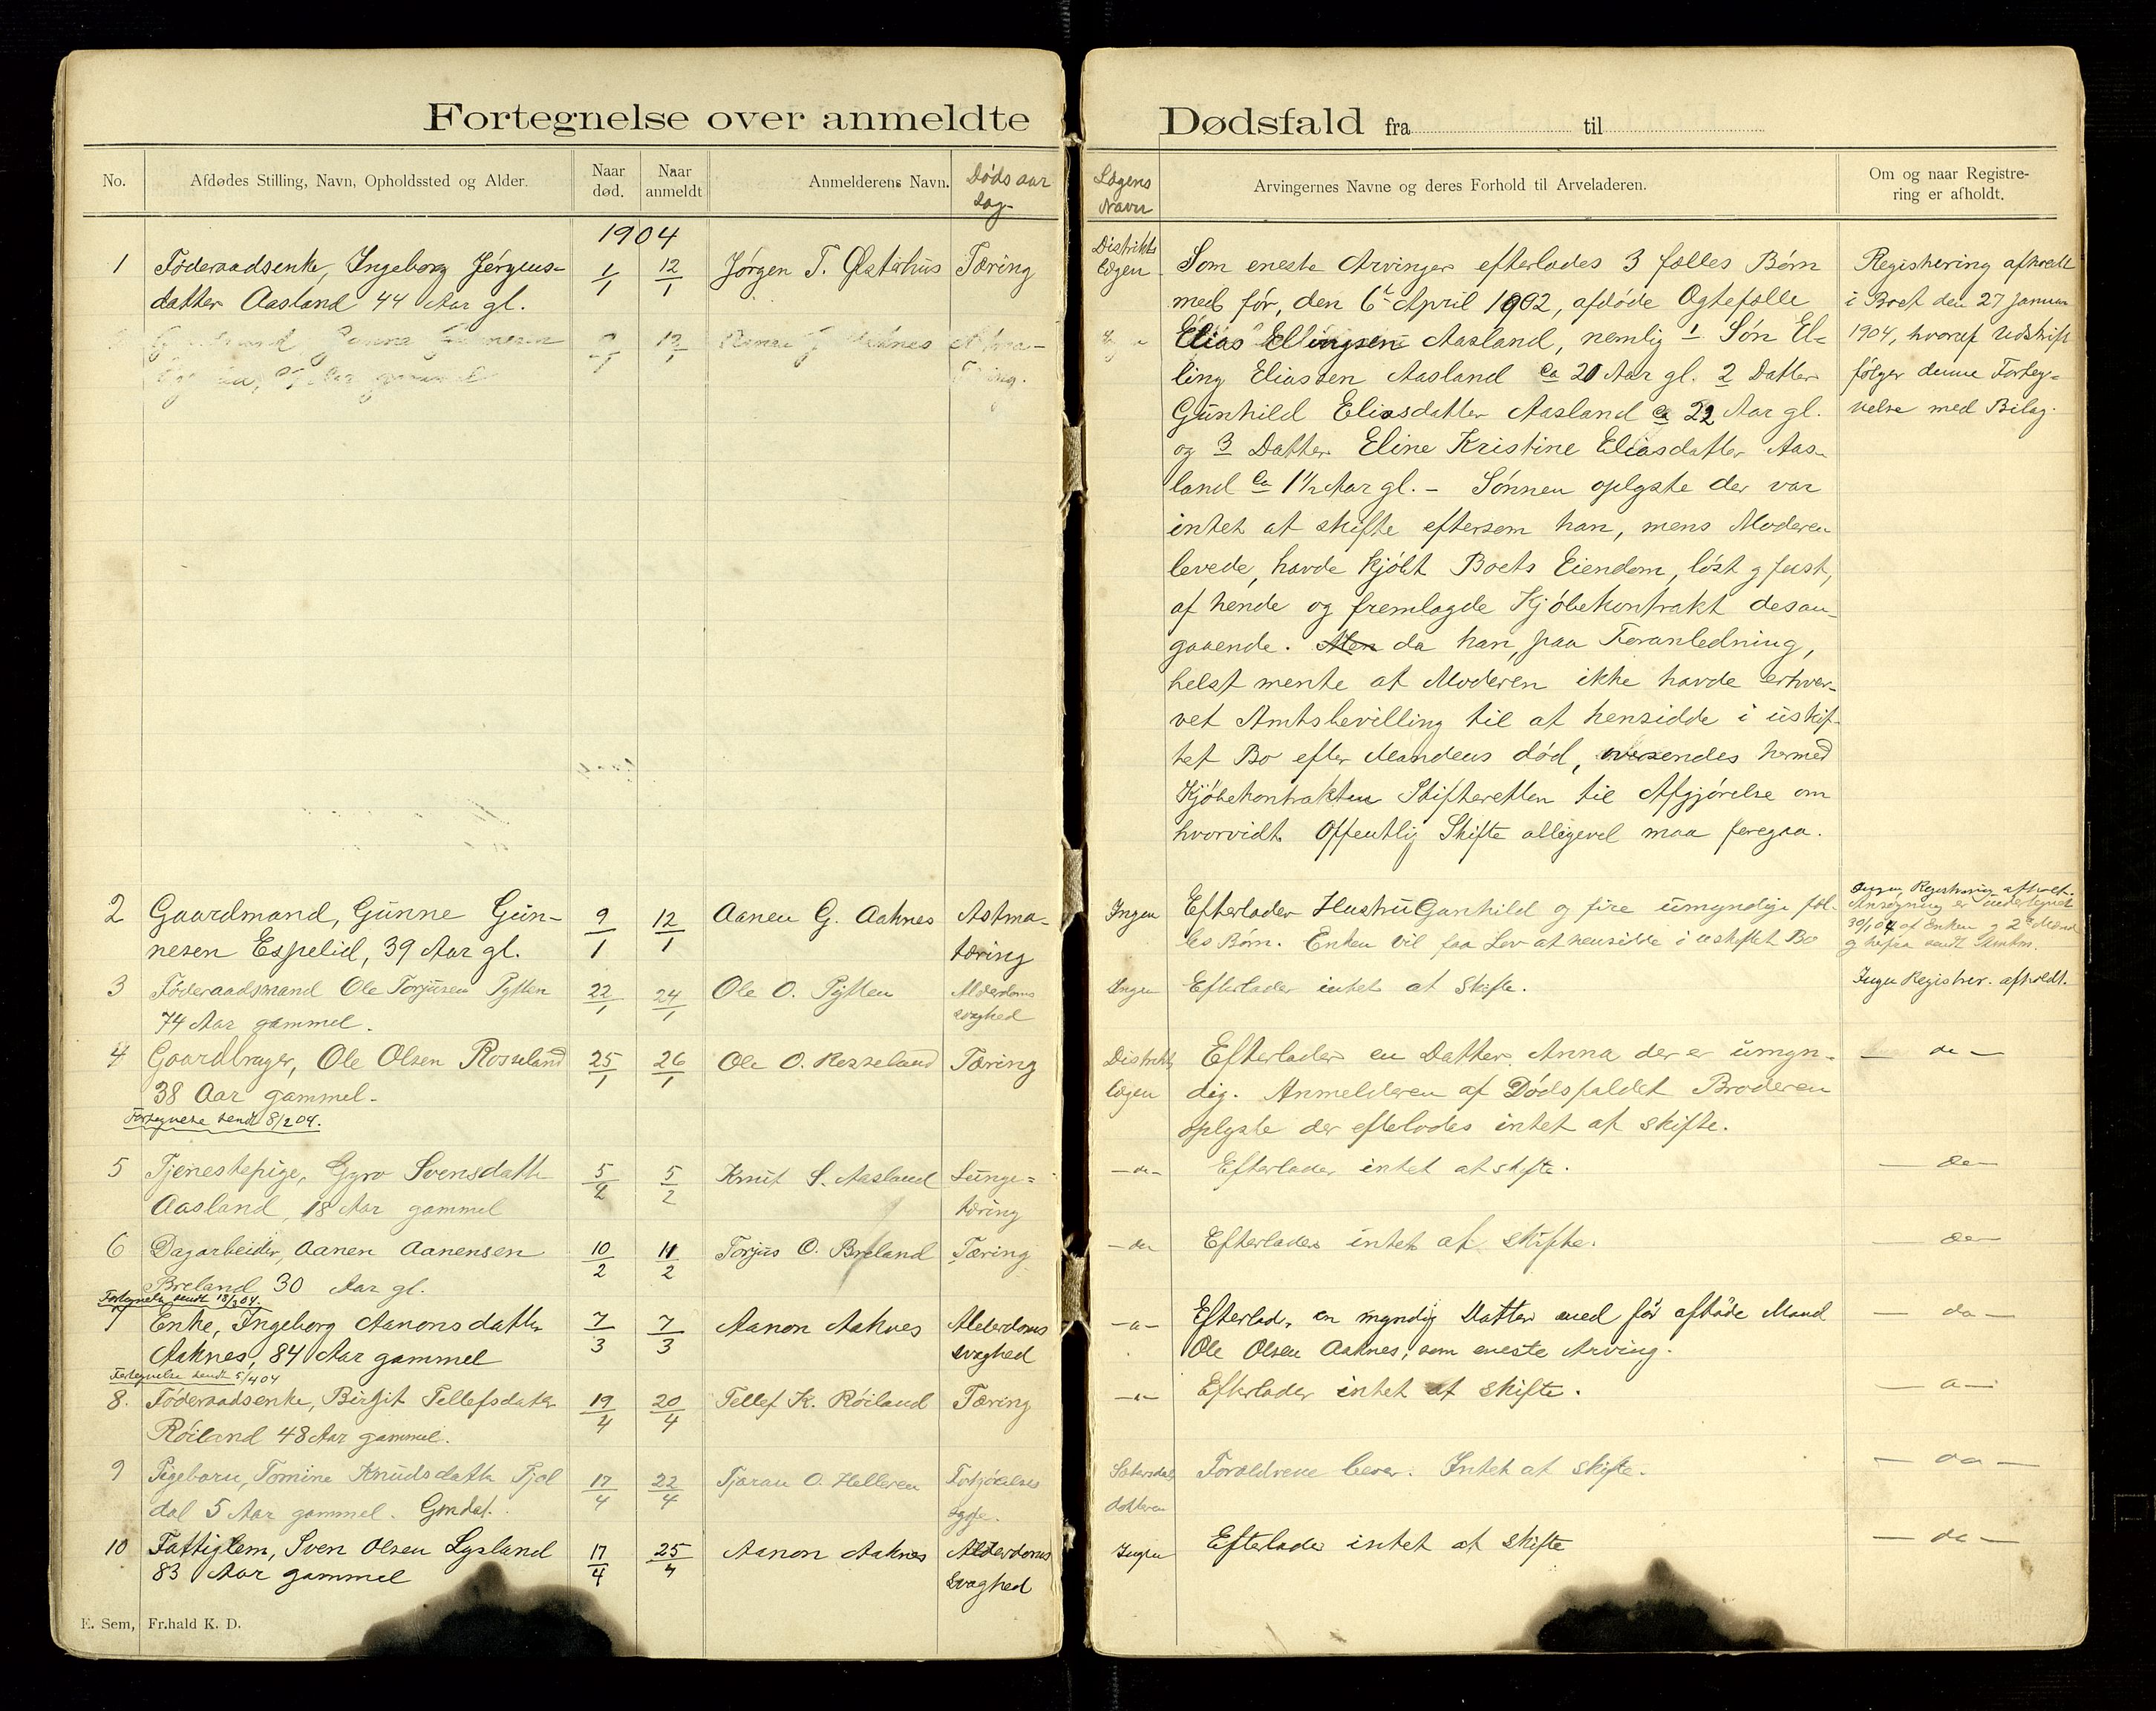 Fortegnelse over anmeldte
No.
Afdødes Stilling, Navn, Opholdssted og Alder.
Naar død.
Naar anmeldt
Anmelderens Navn.
Dødsaar
sag
1904
1 Føderaadsenke, Ingeborg Jørgens- 1/1 12/1 Jørgen T. Østerhus Tæring
datter Aasland 44 Aar gl.
2 Gaardmand, Gunne Gun- 9/1 12/1 Aanen G. Aaknes Astma-
nesen Espelid, 39 Aar gl. tæring
3 Føderaadsmand Ole Torjusen Pytten 22/1 24/1 Ole O. Pytten Alderdoms
74 Aar gammel. svaghed
4 Gaardbruger, Ole Olsen Rosseland 25/1 26/1 Ole O. Rosseland Tæring
38 Aar gammel.
Fortegnelse sendt 8/2 04.
5 Tjenestepige, Gyro Svensdatter 5/2 5/2 Knut S. Aasland Lunge=
Aasland, 18 Aar gammel tæring
6 Dagarbeider, Aanen Aanensen 10/2 11/2 Torjus O. Breland Tæring
Breland 30 Aar gl.
Fortegnelse sendt
7 Enke, Ingeborg Aanonsdatter 7/3 7/3 Aanon Aaknes Alderdoms
Aaknes, 84 Aar gammel svaghed
Fortegnelse sendt 5/4 04
8. Føderaadsenke, Birgit Tellefsdatter 19/4 20/4 Tellef K. Røiland Tæring
Røiland 48 Aar gammel.
9 Pigebarn, Tomine Knudsdatter 17/4 22/4 Tjøran O. Helleren
dal 5 Aar gammel.
10 Fattiglem, Sven Olsen Lysland 17/4 25/4 Aanon Aaknes Alderdoms
83 Aar gammel svaghed
E. Sem, Fr.hald K. D.
Dødsfald fra til
Lægens Navn
Arvingernes Navne og deres Forhold til Arveladeren.
Om og naar Registre-
ring er afholdt.
Distrikts
lægen
Som eneste Arvinger efterlades 3 fælles Børn
med før, den 6t April 1902, afdøde Ægtefælle
Elias Ellingsen Aasland, nemlig 1 Søn El-
ling Eliassen Aasland ca 20 Aar gl. 2 Datter
Gunhild Eliasdatter Aasland ca 22 Aar gl.
og 3 Datter Eline Kristine Eliasdatter Aas-
land ca 1 1/2 Aar gl. - Sønnen oplyste der var
intet at skifte eftersom han, mens Moderen
levede, havde kjøbt Boets Eiendom, løst og fast,
af hende og fremlagde Kjøbekontrakt desan-
gaaende. Men da han, paa Foranledning,
helst mente at Moderen ikke havde erhver-
vet Amtsbevilling til at hensidde i uskif-
tet Bo efter Mandens død, oversendes hermed
Kjøbekontrakten Skifteretten til Afgjørelse om
hvorvidt Offentlig Skifte alligevel maa foregaa.
Registrering afholdt
i Boet den 27 Januar
1904, hvoraf Udskrift
følger denne Forteg-
nelse med Bilag.
Ingen Efterlader Hustru Gunhild og fire umyndige fæl-
les Børn. Enken vil faa Lov at hensidde i uskiftet Bo
Ingen Registrering afholdt.
Ansøgning er undertegnet
30/1 04 af Enken og 2de Mænd
Ingen Efterlader intet at skifte. Ingen Registrer. afholdt.
Distrikts Efterlader en Datter Anna der er umyn- — do —
lægen dig. Anmelderen af Dødsfaldet Broderen
oplyste der efterlodes intet at skifte.
— do — Efterlader intet at skifte. — do —
— do Efterlader intet at skifte. — do —
— Efterlad. en myndig Datter med før afdøde Mand — do —
Ole Olsen Aaknes, som eneste Arving.
— Efterlader intet at skifte. —
Sætersdal Forældrene lever. Intet at skifte. — do —
doktoren
Ingen Efterlader intet at skifte — do —